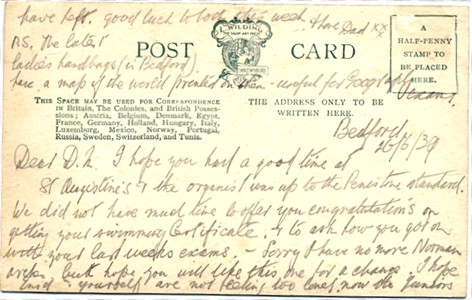 have left. good luck to both this week
Dad xx
P.S. The latest
ladies handbags (in Bedford)
have a map of the world printed on them - useful for Geography
Exams!
L. WILDING
POST CARD
A
HALF-PENNY
STAMP TO
BE PLACED
HERE.
THIS SPACE MAY BE USED FOR CORRESPONDENCE
in Britain, The Colonies, and British Posses-
sions; Austria, Belgium, Denmark, Egypt,
France, Germany, Holland, Hungary, Italy,
Luxemburg, Mexico, Norway, Portugal,
Russia, Sweden, Switzerland, and Tunis.
THE ADDRESS ONLY TO BE
WRITTEN HERE.
Bedford
26/6/39
Dear D.A. I hope you had a good time at
St Augustine's & the organist was up to the Penistone standard.
We did not have much time to offer you congratulations on
getting your swimming Certificate & to ask how you got on
with your last weeks exams. Sorry I have no more Norman
arches, but hope you will like this one for a change. I hope
Enid & yourself are not feeling too lonely now the Juniors